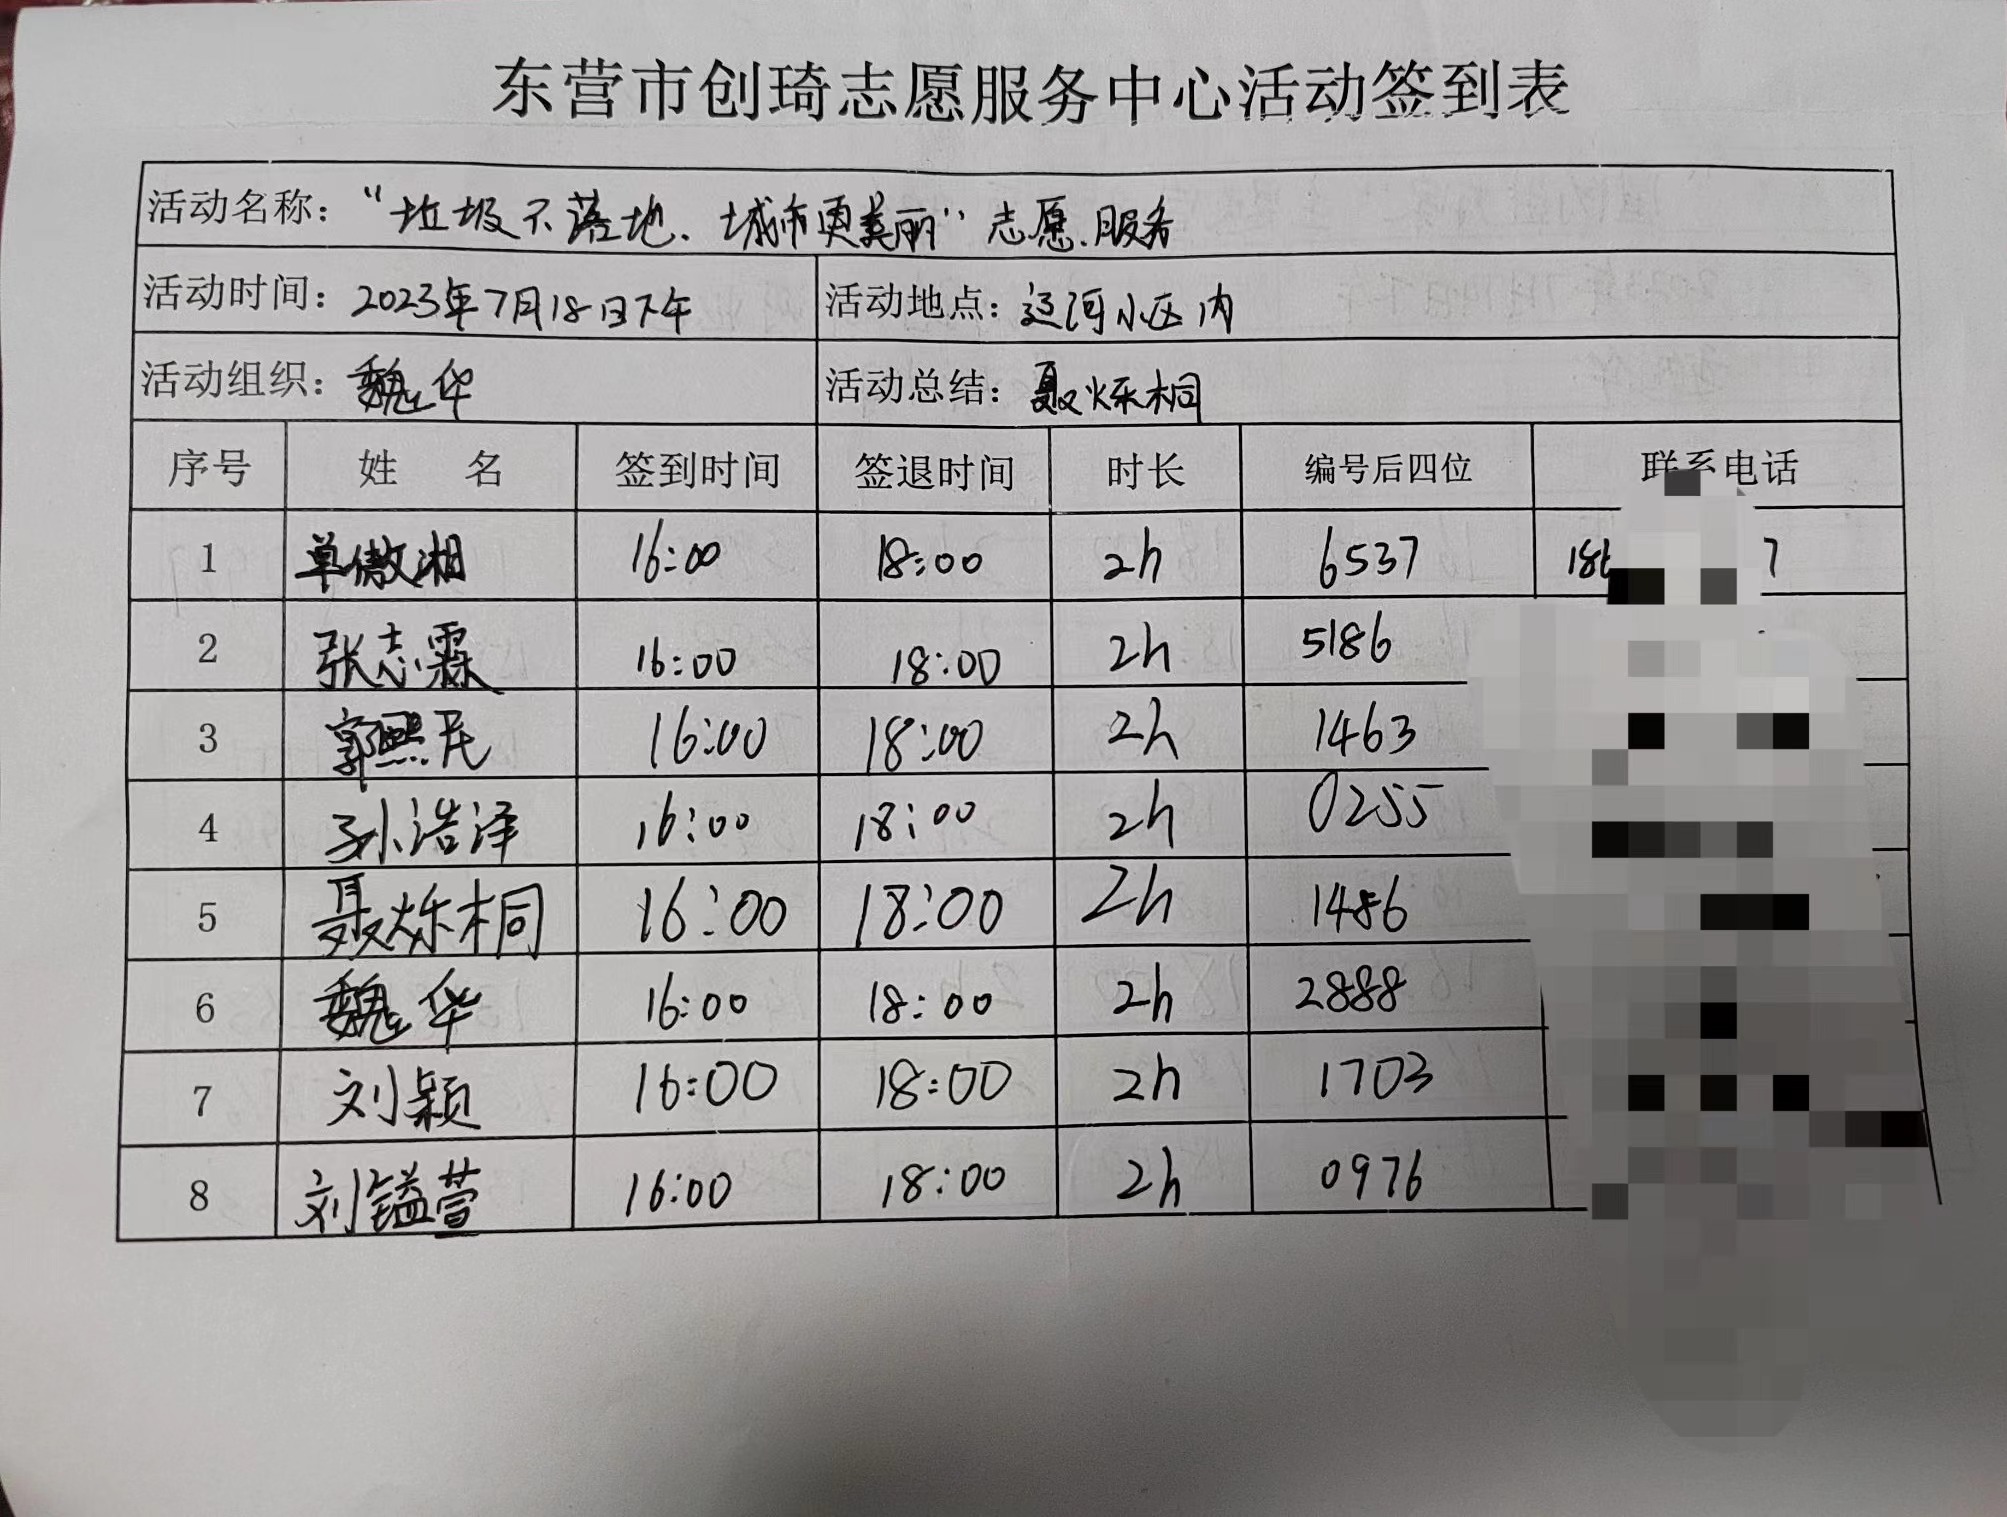 东营市创琦志愿服务中心活动签到表
活动名称：“垃圾不落地、城市更美丽”志愿服务
活动时间：2023年7月18日下午 活动地点：辽河小区内
活动组织：魏华 活动总结：聂烁桐
序号 姓 名 签到时间 签退时间 时长 编号后四位 联系电话
1 单傲湘 16:00 18:00 2h 6537
2 张志霖 16:00 18:00 2h 5186
3 郭熙民 16:00 18:00 2h 1463
4 孙浩泽 16:00 18:00 2h 0255
5 聂烁桐 16:00 18:00 2h 1486
6 魏华 16:00 18:00 2h 2888
7 刘颖 16:00 18:00 2h 1703
8 刘镒萱 16:00 18:00 2h 0976